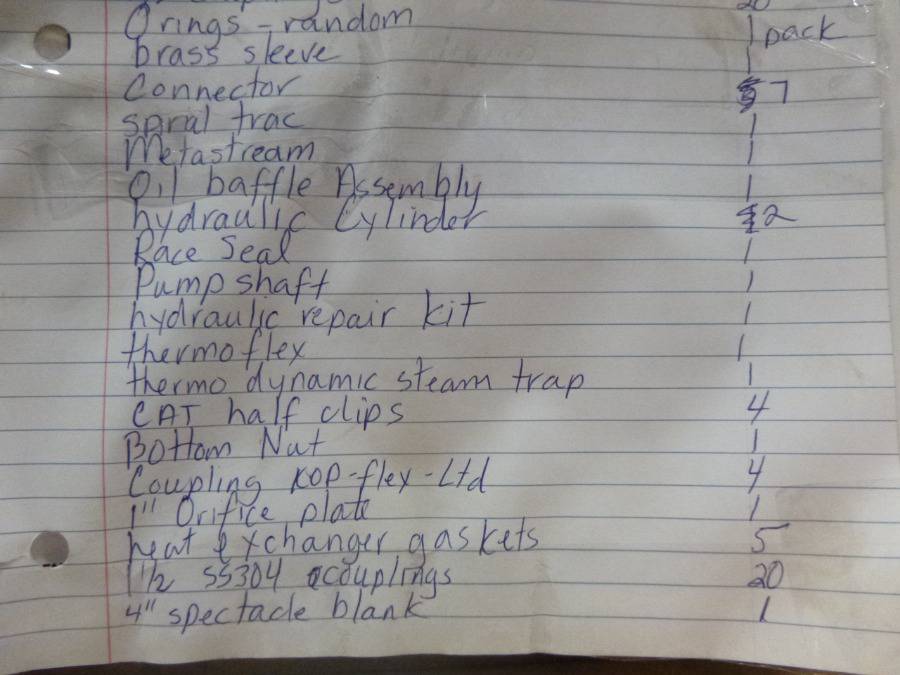 O rings - random 1 pack
brass sleeve 1
Connector 7
spiral trac 1
Metastream 1
Oil baffle Assembly 1
hydraulic Cylinder 2
Race Seal 1
Pump shaft 1
hydraulic repair kit 1
thermoflex 1
thermo dynamic steam trap 1
CAT half clips 4
Bottom Nut 1
Coupling KOP-flex-Ltd 4
1" Orifice plate 1
heat exchanger gaskets 5
1 1/2 SS304 couplings 20
4" spectacle blank 1